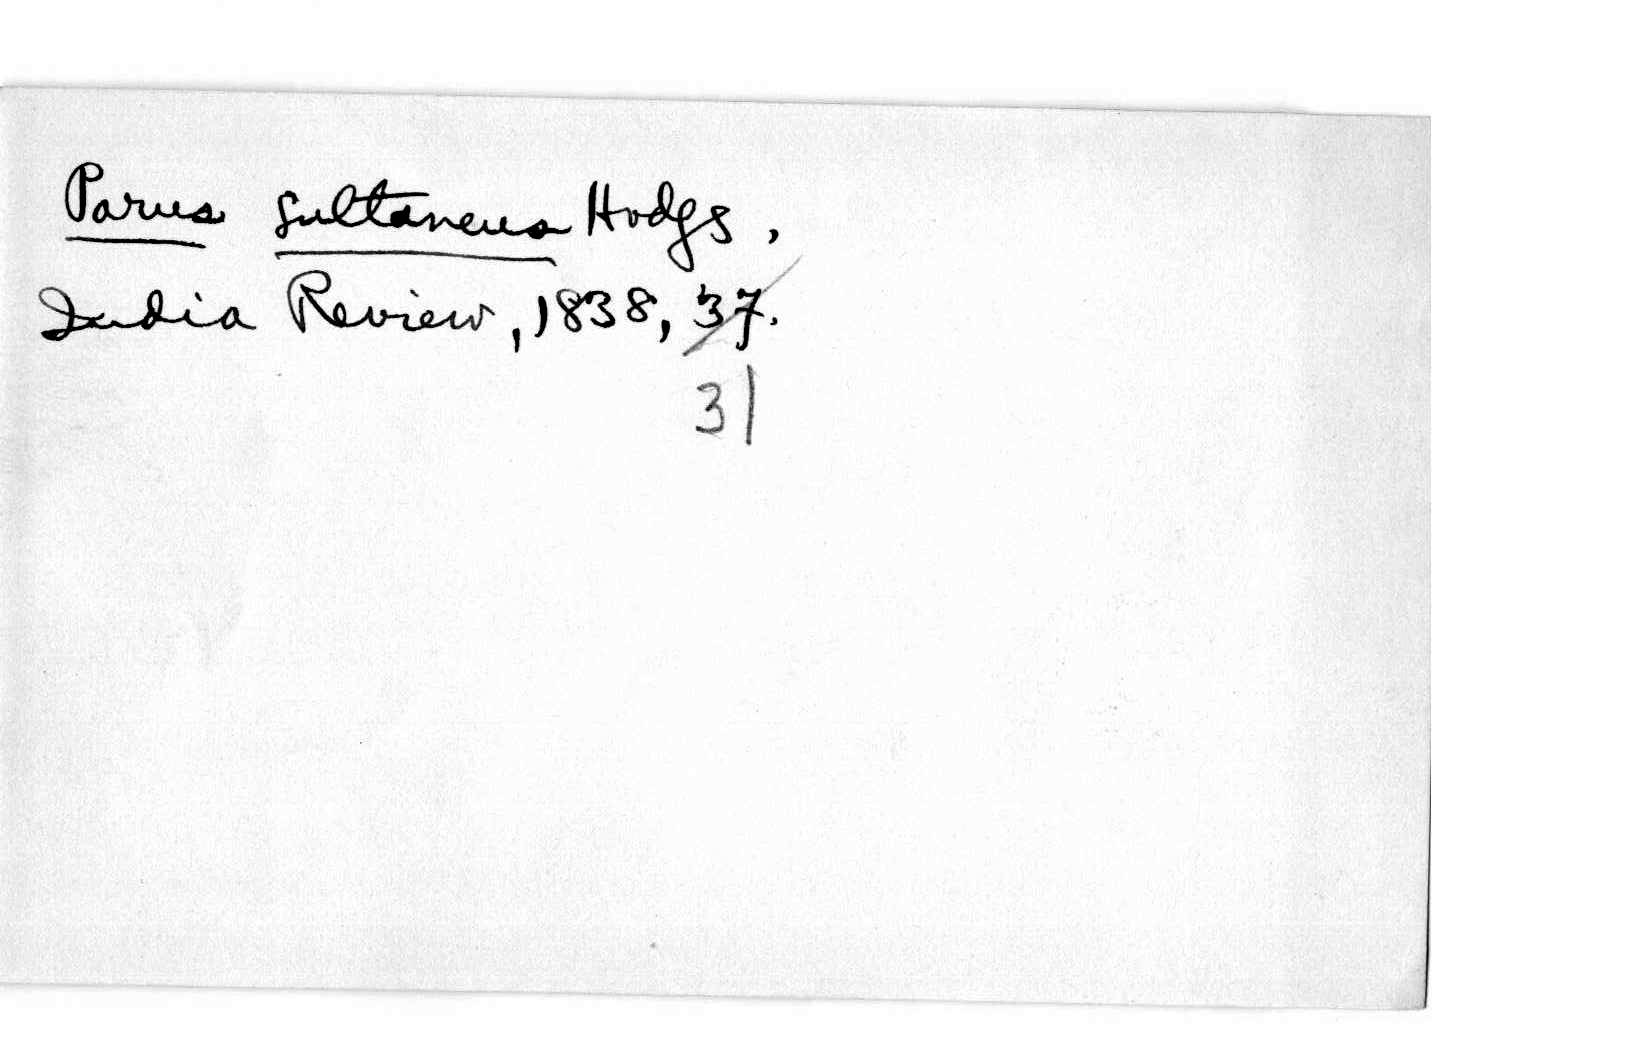 Parus sultaneus Hodgs,
India Review, 1838, 37.
31